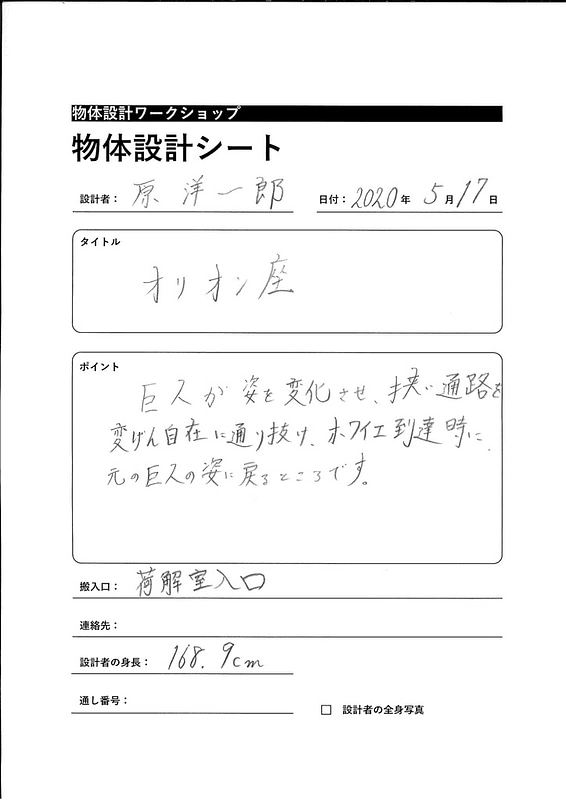 物体設計ワークショップ
物体設計シート
設計者： 原 洋一郎 日付：2020年 5月17日
タイトル
オリオン座
ポイント
巨人が姿を変化させ、狭い通路を
変げん自在に通り抜け、ホワイエ到達時に
元の巨人の姿に戻るところです。
搬入口： 荷解室入口
連絡先：
設計者の身長： 168.9cm
通し番号：
□ 設計者の全身写真